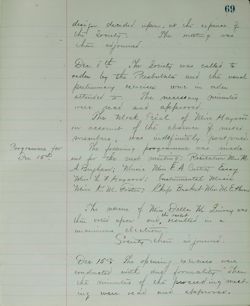 69
design decided upon, at the expense of
the Society. The meeting was
then adjourned.
Dec 8th. The Society was called to
order by the President and the usual
preliminary exercises were in order
attended to. The necessary minutes
were read and approved.
The Mock Trial of Miss Haywood
on account of the absence of several
members, was indefinitely postponed.
Programme for
Dec 15th
The following programme was made
out for the next meeting: Recitation Miss M.
A. Bingham; Miss E. A. Essay
Miss L. Haywood; Instrumental Music
Miss K. M. Miss M. E.
The name of Miss Della M.
was then voted upon and the result was
unanimous election.
Society then adjourned.
Dec 15th The opening exercises were
conducted with due formality. Then
the minutes of the preceding meet-
ing were read and approved.